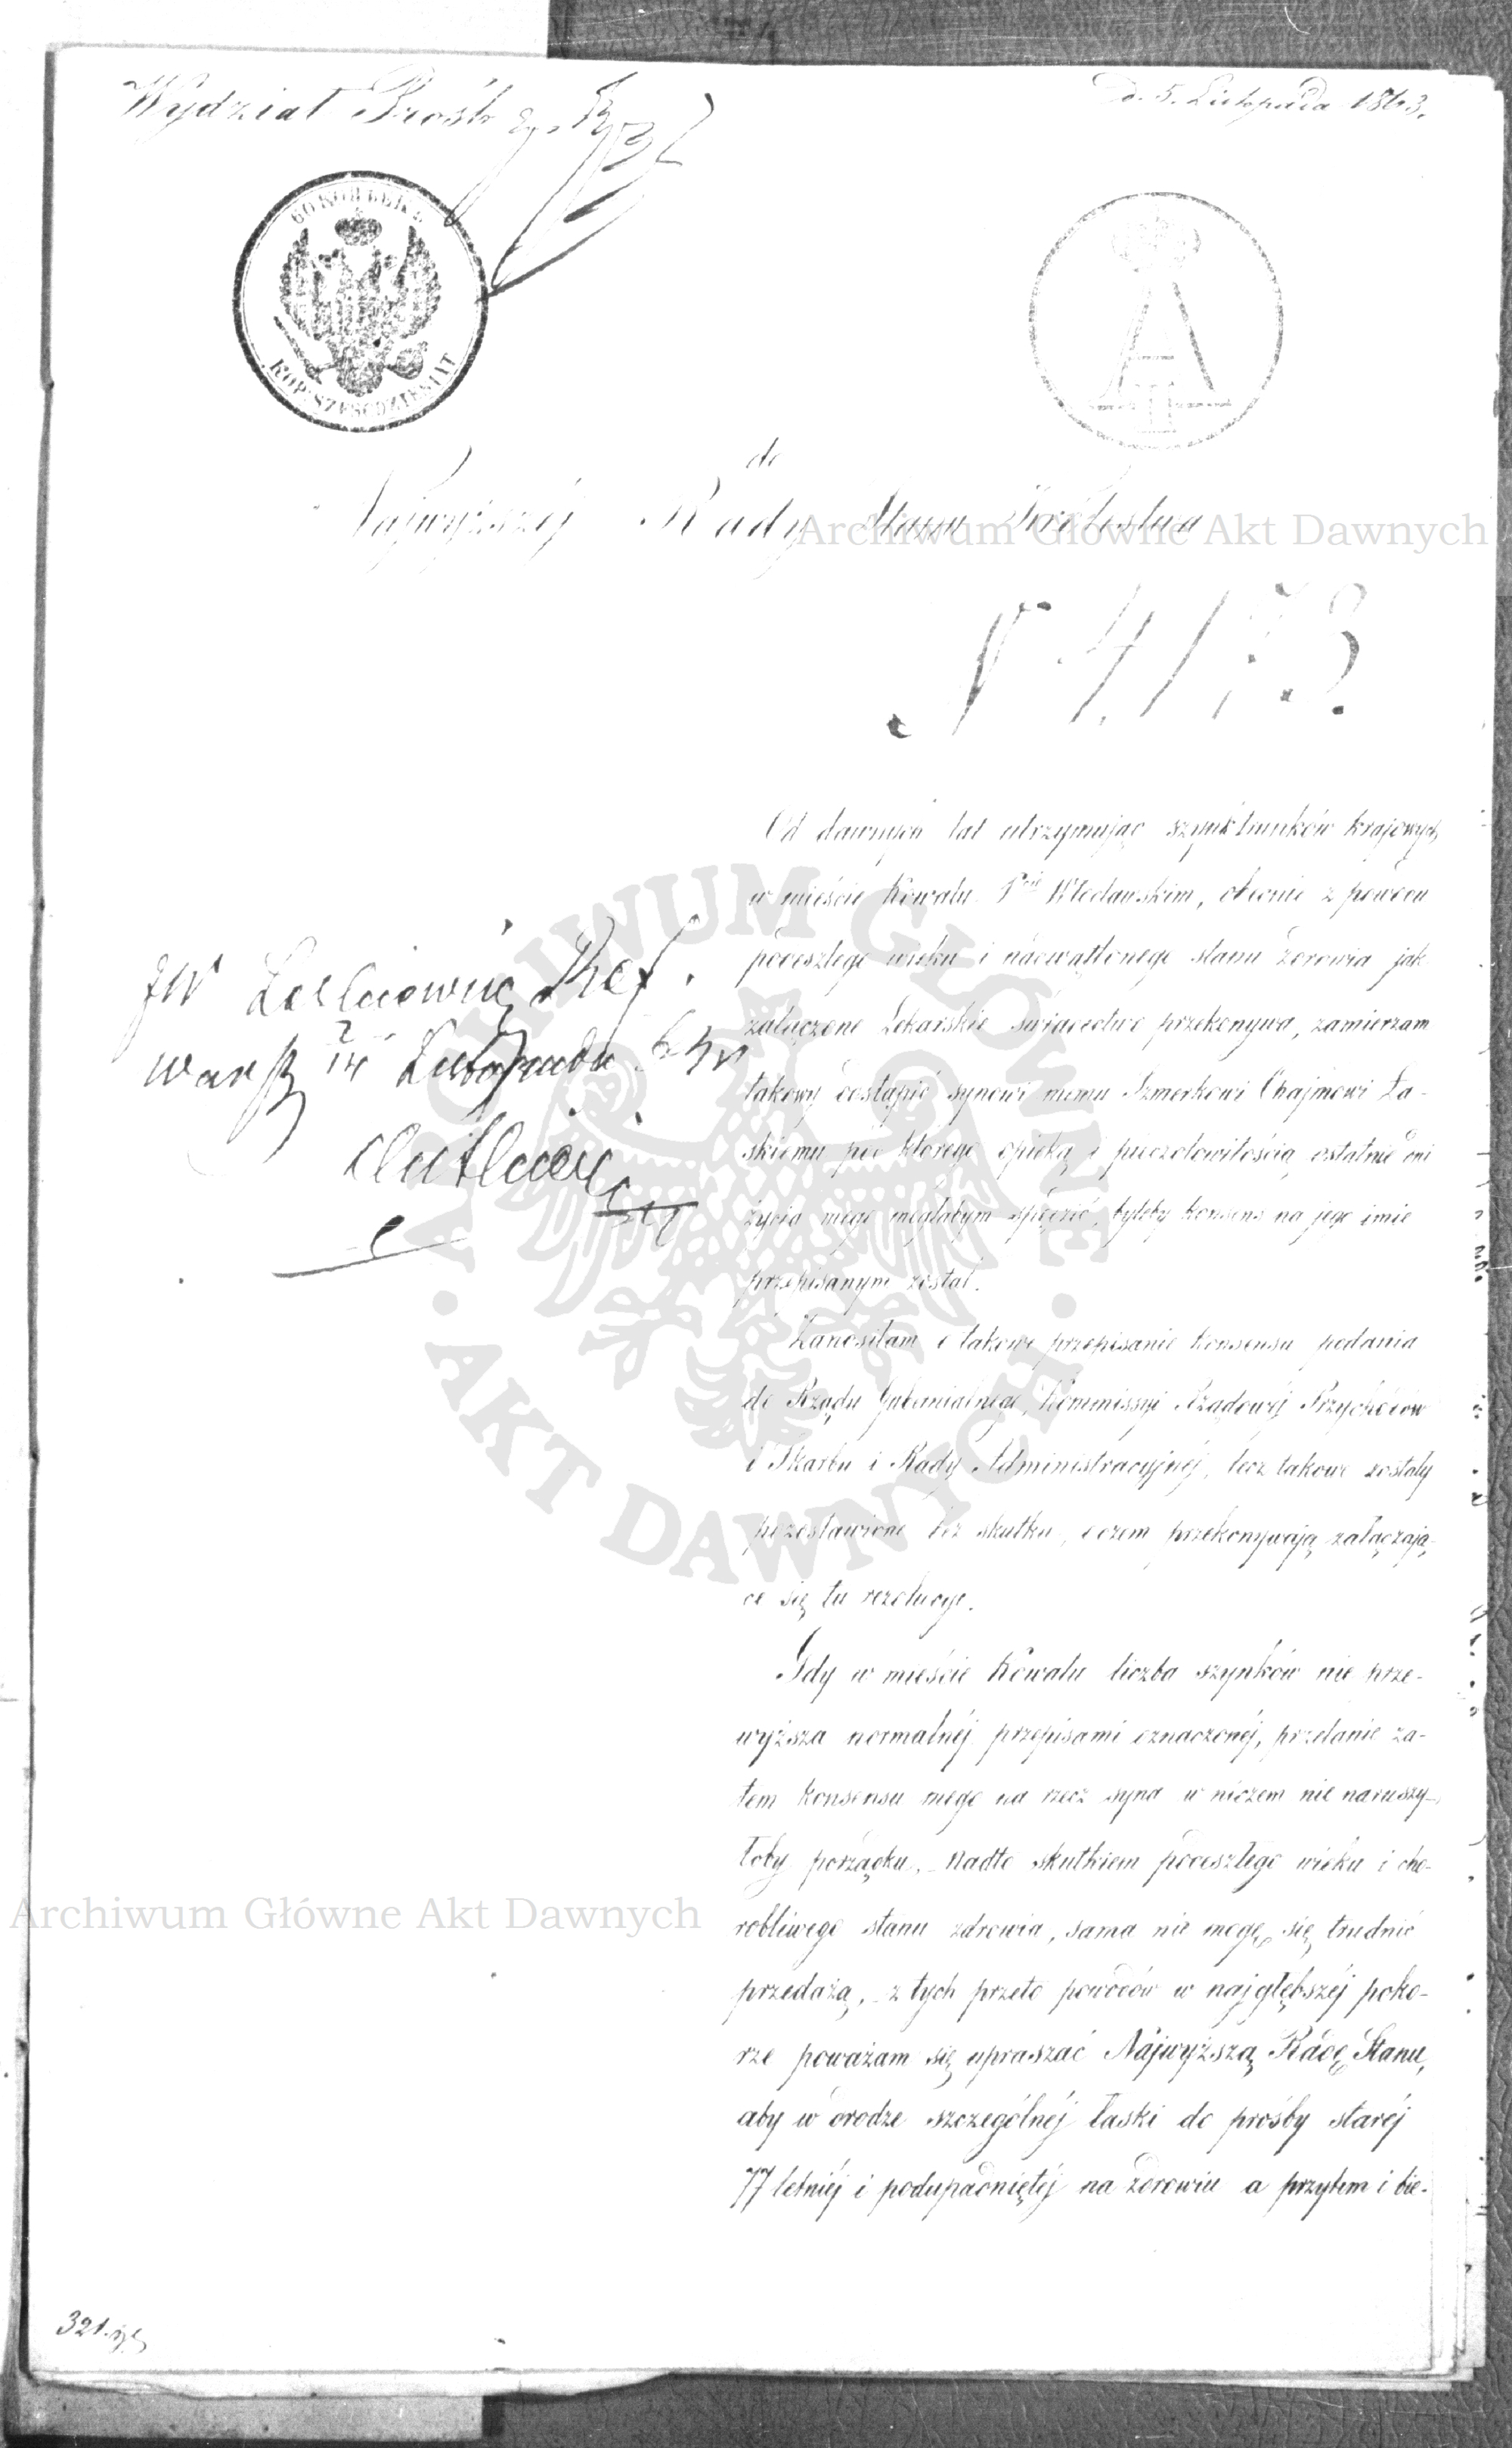 Wydział Prośb
D. 5. Listopada 1863.
60 КОПѢЕКЪ
KOP. SZEŚĆDZIESIĄT
A
II
do
Najwyższéj Rady Stanu Królestwa
Archiwum Główne Akt Dawnych
N 4173
Od dawnych lat utrzymując szynk trunków krajowych
w mieście Kowalu Pcie Włocławskim, obecnie z powodu
podeszłego wieku i nadwątlonego stanu zdrowia jak
załączone Lekarskie świadectwo przekonywa, zamierzam
takowy odstąpić synowi memu Szmerkowi Chajmowi Ła-
skiemu pod którego opieką i pieczołowitością ostatnie dni
życia mego mogłabym spędzić, byleby konsens na jego imie
przepisanym został.
Zanosiłam o takowe przepisanie konsensu podania
do Rządu Gubernialnego, Kommissyi Rządowéj Przychodów
i Skarbu i Rady Administracyjnéj, lecz takowe zostały
pozostawione bez skutku, o czem przekonywają załączają-
ce się tu rezolucye.
Gdy w mieście Kowalu liczba szynków nie prze-
wyższa normalnéj przepisami oznaczonéj, przelanie za-
tem konsensu mego na rzecz syna w niczem nie naruszy-
łoby porządku, nadto skutkiem podeszłego wieku i cho-
robliwego stanu zdrowia, sama nie mogę się trudnić
przedażą, z tych przeto powodów w najgłębszéj poko-
rze poważam się upraszać Najwyższą Radę Stanu,
aby w drodze szczególnéj łaski do prośby staréj
77 letniéj i podupadniętéj na zdrowiu a przytem i bie-
JW Ref.
14 Listopada 63
ARCHIWUM GŁÓWNE
AKT DAWNYCH
Archiwum Główne Akt Dawnych
321.